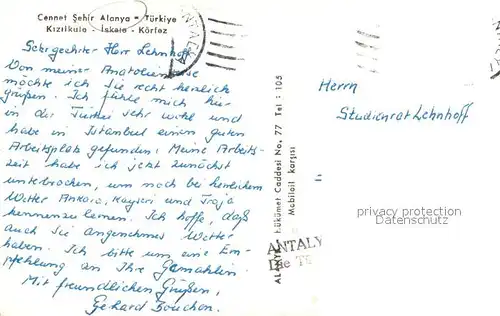 Cennet Şehir Alanya - Türkiye
Kızılkule - İskele - Körfez
Sehr geehrter Herr Lehnhoff,
Von meiner Anatolienreise
möchte ich Sie recht herzlich
grüßen. Ich fühle mich hier
in der Türkei sehr wohl und
habe in Istanbul einen guten
Arbeitsplatz gefunden. Meine Arbeits-
zeit habe ich jetzt zunächst
unterbrochen, um noch bei herrlichem
Wetter Ankara, Kayseri und Troja
kennenzulernen. Ich hoffe, daß
auch Sie angenehmes Wetter
haben. Ich bitte um eine Em-
pfehlung an Ihre Gemahlin.
Mit freundlichen Grüßen,
Gerhard
Herrn
Studienrat Lehnhoff
Hükümet Caddesi No. 77 Tel : 105
Mobiloil karşısı
privacy protection
watermark
ANTALY
ANTALY